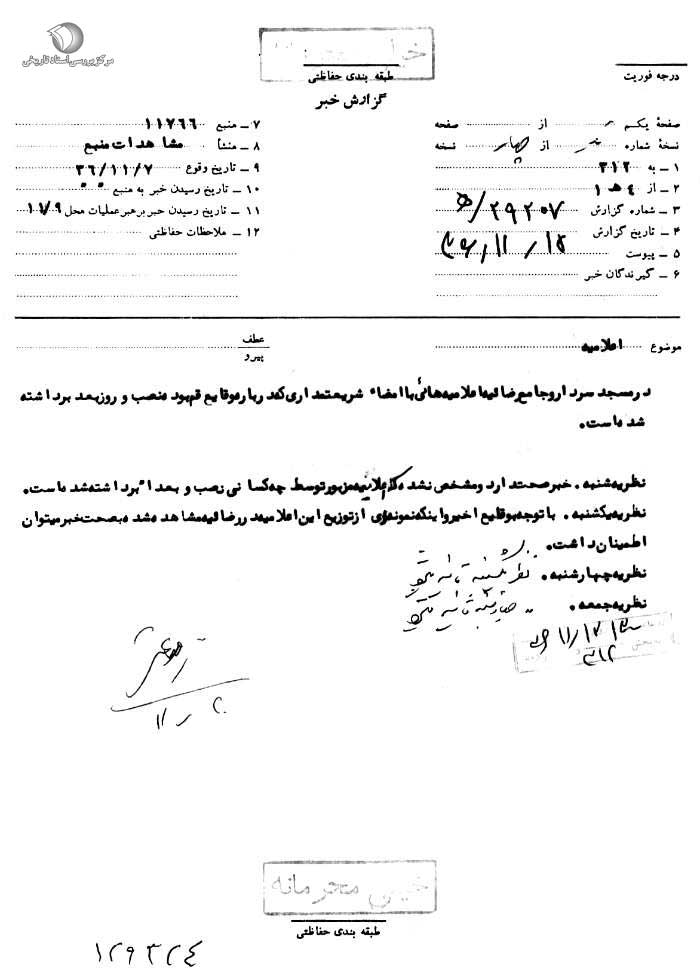 مرکز بررسی اسناد تاریخی
درجه فوریت
طبقه بندی حفاظتی
گزارش خبر
صفحهٔ یکم از صفحه
نسخهٔ شماره از چهار نسخه
۱ ـ به ۳۱۲
۲ ـ از ۴ ﻫ ۱
۳ ـ شماره گزارش ۲۹۲۰۷/ﻫ
۴ ـ تاریخ گزارش
۵ ـ پیوست
۶ ـ گیرندگان خبر
۷ ـ منبع ۱۱۷۶۶
۸ ـ منشأ مشاهدات منبع
۹ ـ تاریخ وقوع ۳۶/۱۱/۷
۱۰ ـ تاریخ رسیدن خبر به منبع
۱۱ ـ تاریخ رسیدن خبر برهبر عملیات محل
۱۲ ـ ملاحظات حفاظتی
موضوع اعلامیه
عطف
پیرو
درمسجد سردار وجامع رضائیه اعلامیه هائی با امضاء شریعتمداری که درباره وقایع قم بود نصب و روز بعد برداشته
شده است.
نظریه شنبه. خبر صحت دارد ومشخص نشده که اعلامیه مزبور توسط چه کسانی نصب و بعداً برداشته شده است.
نظریه یکشنبه. با توجه بوقایع اخیر واینکه نمونه‌ای از توزیع این اعلامیه در رضائیه مشاهده شده بصحت خبر میتوان
اطمینان داشت.
نظریه چهارشنبه. نظریه یکشنبه تائید میشود
نظریه جمعه.
۳۱۲
خیلی محرمانه
طبقه بندی حفاظتی
۱۲۹۳۲۴